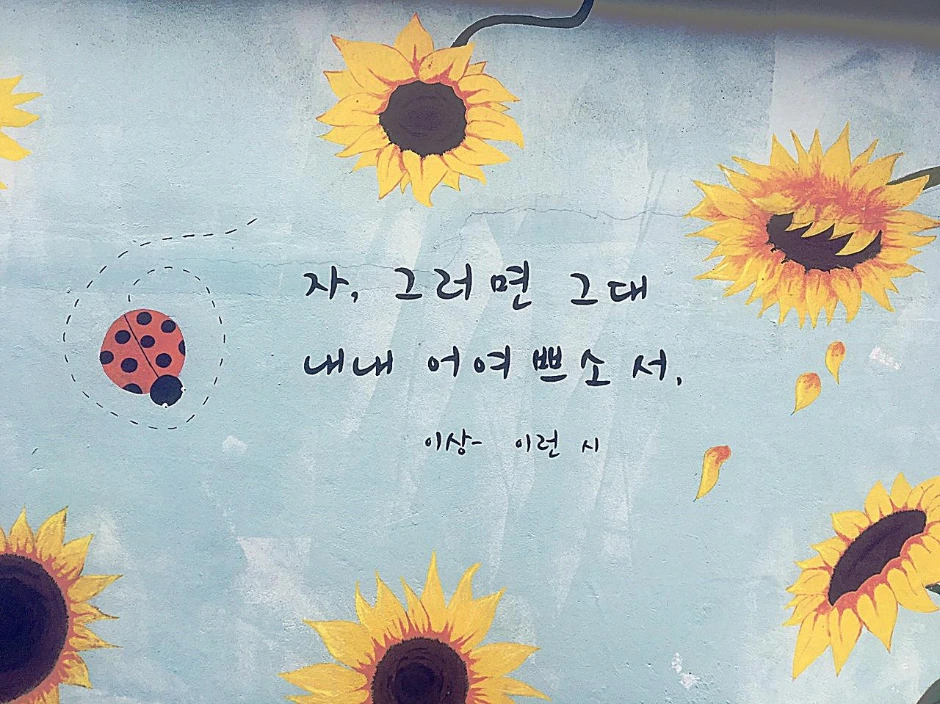 자, 그러면 그대
내내 어여쁘소서.
이상- 이런 시